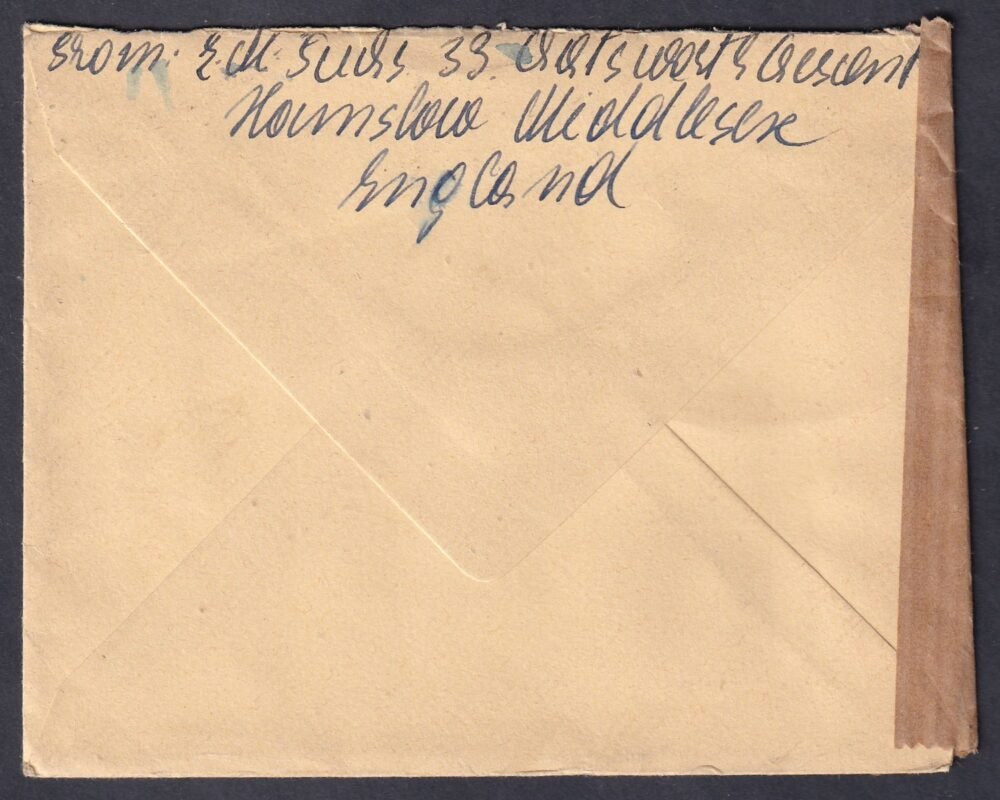 From: E.M. 33. Chatsworth Crescent
Hounslow Middlesex
England